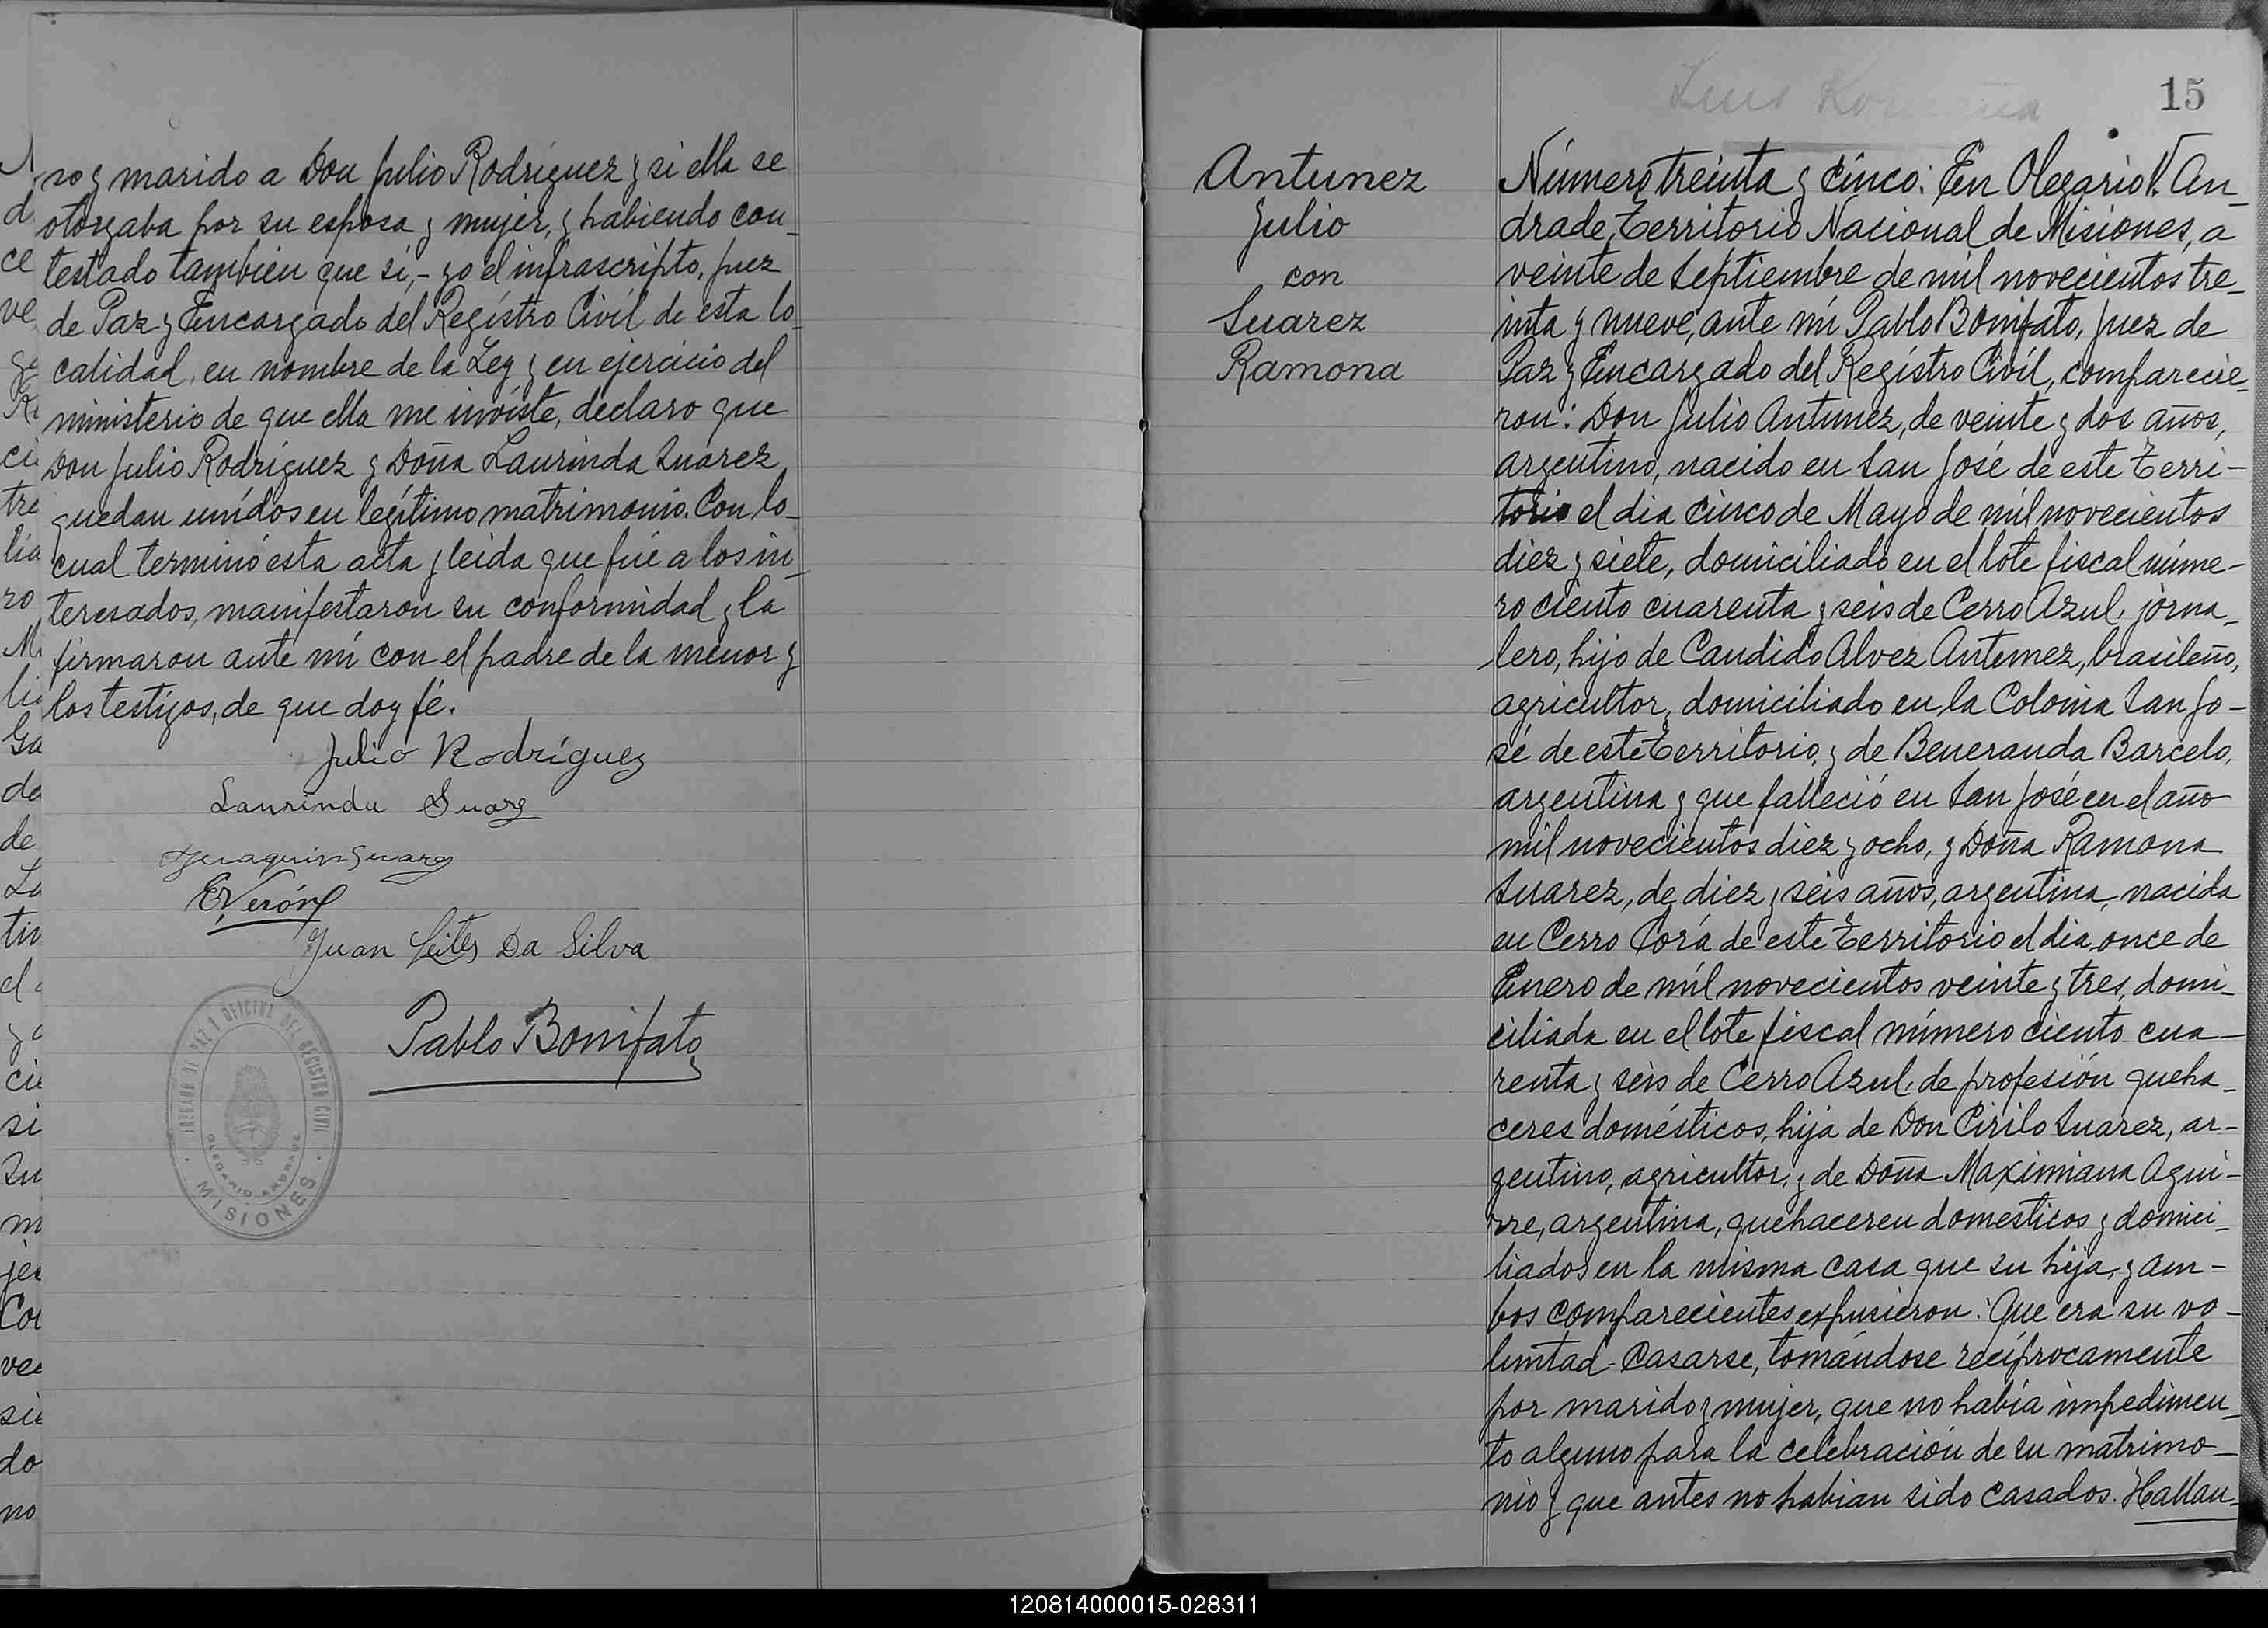 ro y marido a Don Julio Rodríguez y si ella se
otorgaba por su esposa y mujer, y habiendo con_
testado también que si, - yo el infrascripto, Juez
de Paz y Encargado del Regístro Civíl de esta lo_
calidad, en nombre de la Ley y en ejercicio del
ministerio de que ella me invíste, declaro que
Don Julio Rodríguez y Doña Laurinda Suarez
quedan unídos en legítimo matrimonio. Con lo_
cual terminó esta acta y leida que fué a los in_
teresados, manifestaron su conformidad y la
firmaron ante mí con el padre de la menor y
los testigos, de que doy fé.
Julio Rodríguez
Laurinda Suarz
Juaquin Suarez
E. Verón
Juan Leites Da Silva
Pablo Bonifato
JUZGADO DE PAZ Y OFICINA DEL REGISTRO CIVIL
OLEGARIO ANDRADE
MISIONES
15
Antunez
Julio
con
Suarez
Ramona
Número treinta y cinco: En Olegario V. An_
drade, Territorio Nacional de Misiones, a
veinte de Septiembre de mil novecientos tre_
inta y nueve, ante mí Pablo Bonifato, Juez de
Paz y Encargado del Regístro Civíl, comparecie_
ron: Don Julio Antunez, de veinte y dos años,
argentino, nacido en San José de este Terri-
torio el dia cinco de Mayo de mil novecientos
diez y siete, domiciliado en el lote fiscal núme-
ro ciento cuarenta y seis de Cerro Azul, jorna_
lero, hijo de Candido Alvez Antunez, brasileño,
agricultor, domiciliado en la Colonia San Jo-
sé de este Territorio, y de Beneranda Barcelo,
argentina y que falleció en San José en el año
mil novecientos diez y ocho, y Doña Ramona
Suarez, de diez y seis años, argentina, nacida
en Cerro Corá de este Territorio el dia once de
Enero de mil novecientos veinte y tres, domi_
ciliada en el lote fiscal número ciento cua_
renta y seis de Cerro Azul, de profesión queha_
ceres domésticos, hija de Don Cirilo Suarez, ar-
gentino, agricultor, y de Doña Maximiana Agui-
rre, argentina, quehaceren domesticos y domici_
liados en la misma casa que su hija, y am-
bos comparecientes expusieron: Que era su vo-
luntad casarse, tomándose recíprocamente
por marido y mujer, que no había impedimen_
to alguno para la celebración de su matrimo_
nio y que antes no habian sido casados. Hallan_
120814000015-028311